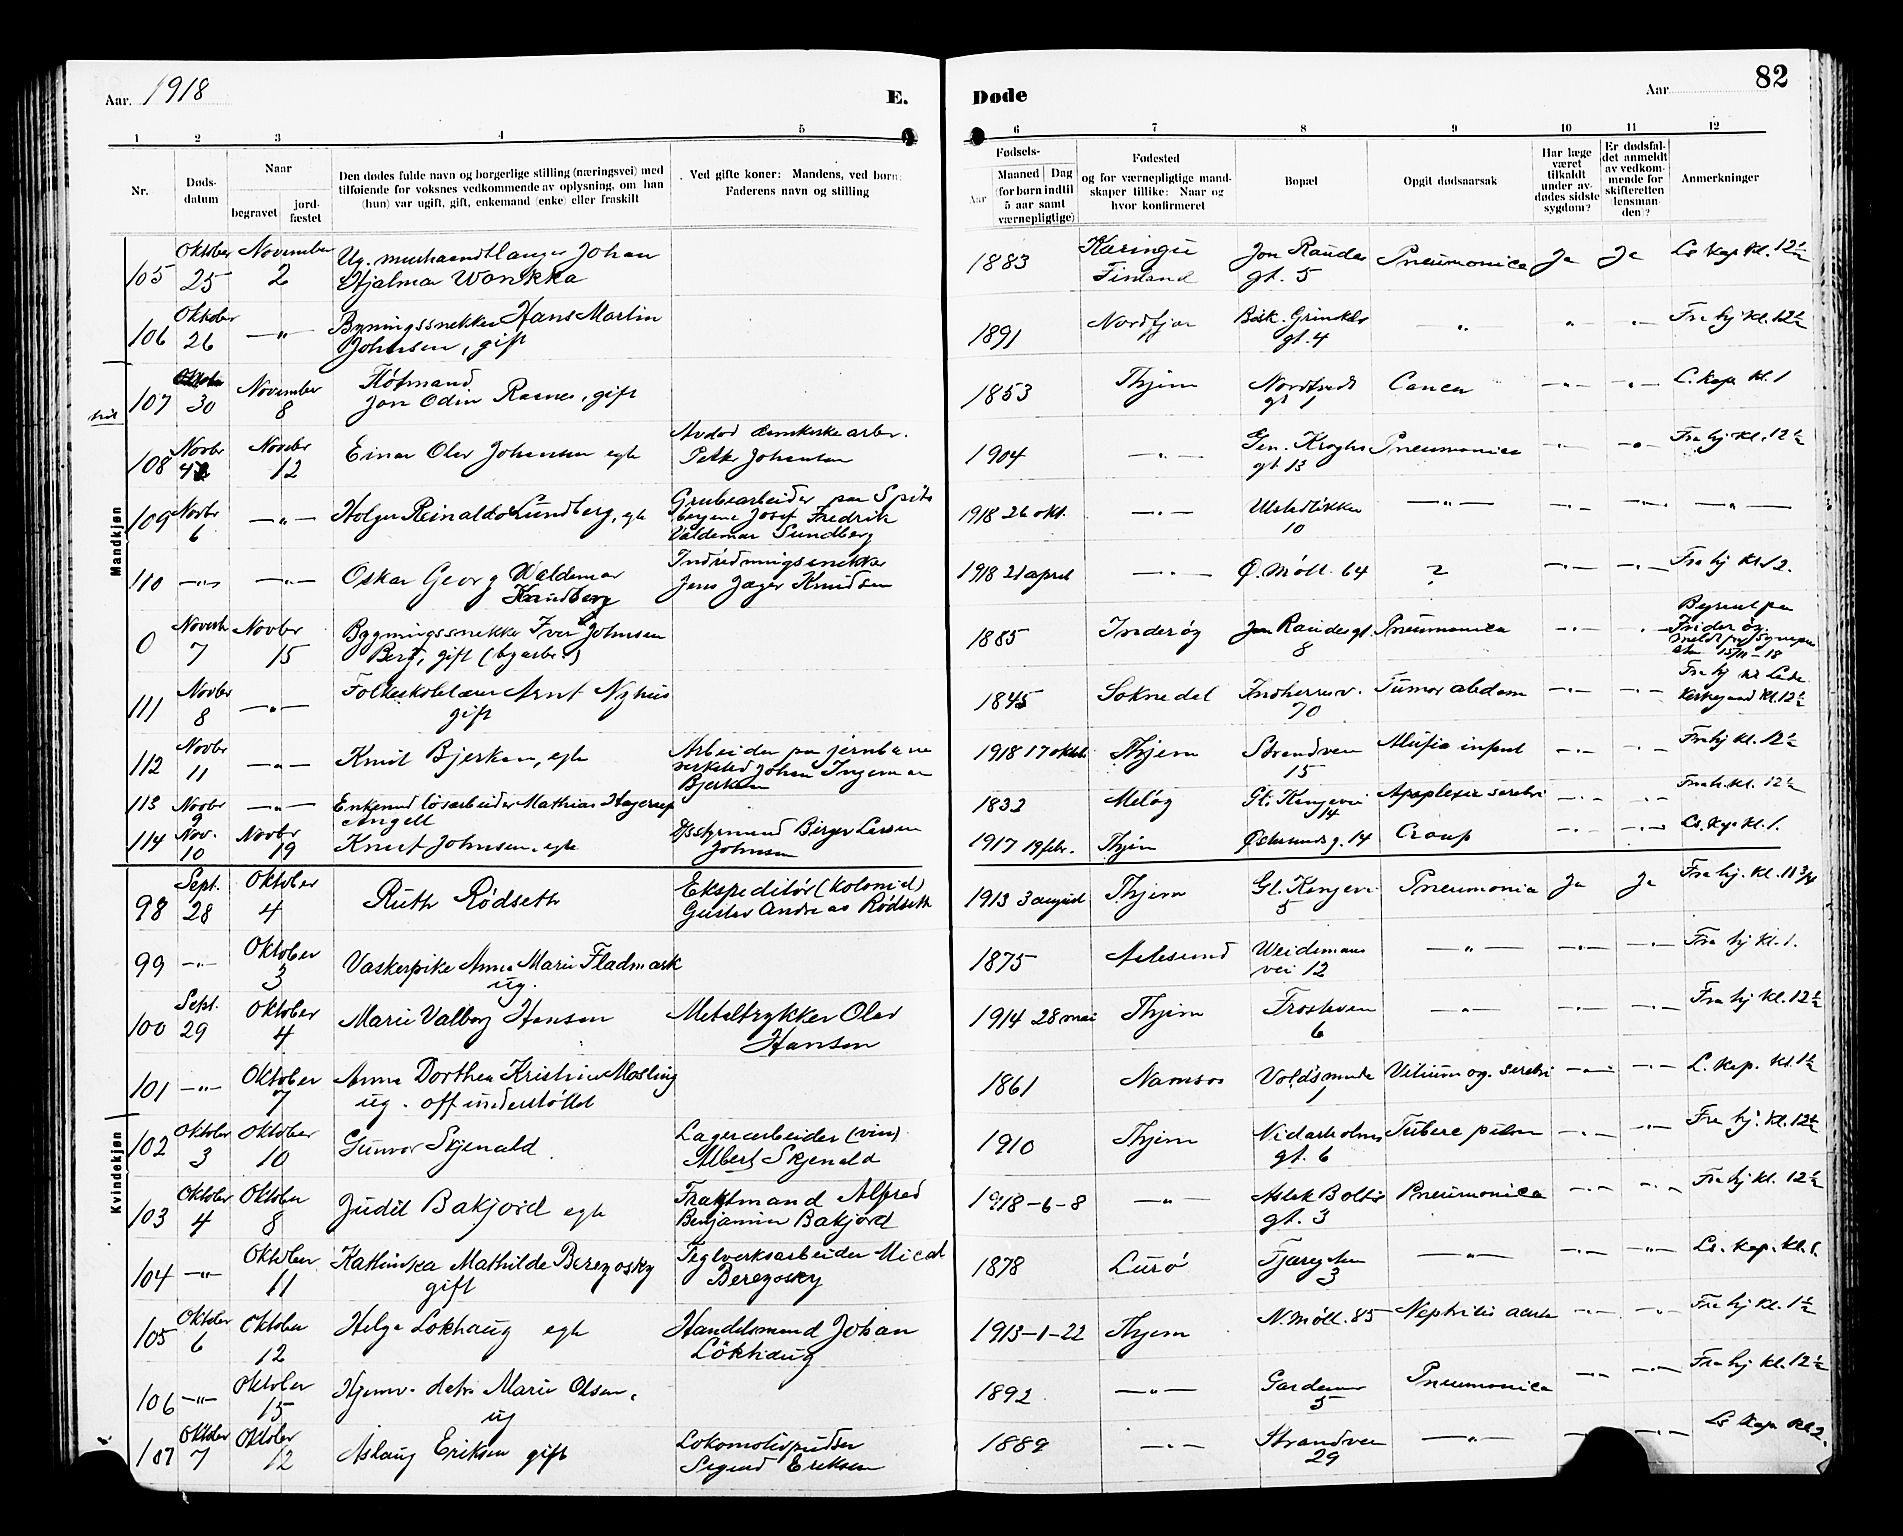 Aar. 1918
E.
Døde
Aar
82
1 2 3 4 5 6 7 8 9 10 11 12
Nr.
Døds-
datum
Naar
begravet
jord-
fæstet
Den dødes fulde navn og borgerlige stilling (næringsvei) med
tilføiende for voksnes vedkommende av oplysning, om han
(hun) var ugift, gift, enkemand (enke) eller fraskilt
Ved gifte koner: Mandens, ved børn:
Faderens navn og stilling
Fødsels-
Aar
Maaned Dag
(for børn indtil
5 aar samt
værnepligtige)
Fødested
og for værnepligtige mand-
skaper tillike: Naar og
hvor konfirmeret
Bopæl
Opgit dødsaarsak
Har læge
været
tilkaldt
under av-
dødes sidste
sygdom?
Er dødsfal-
det anmeldt
av vedkom-
mende for
skifteretten
(lensman-
den)?
Anmerkninger
Mandkjøn
105 Oktober 25 November 2 Ug. murhaandtlanger Johan
Hjalmar Wonkka 1883 Finland Jon Raudes
gt. 5 Pneumonica Ja Ja Ls Kap Kl. 12½
106 Oktober 26 —"— Bygningssnekker Hans Martin
Johnsen, gift 1891 gt. 4 —"— " —"— Fra hj Kl. 12½
107 30 November 8
Jon Odin Rasnes, gift 1853 Thjem gt 1 Cancer —"— —"— L. Kap Kl. 1
108 Novbr 4 Novbr 12 Einar Olav Johansen egte
Petter Johansen 1904 —"— Gen. Kroghs
gt 13 Pneumonica —"— —"— Fra hj Kl. 12½
109 Novbr 6 —"— Holger Reinaldo Lundberg, egte Grubearbeider paa Spits
bergene Josef Fredrik
Valdemar Lundberg 1918 26 okt. —"— Ulstadløkken
10 —"— —"— —"—
110 —"— —"— Oskar Georg Waldemar
Jens Jæger Knudsen 1918 21 april —"— Ø. Møll. 64 ? —"— —"— Fra hj Kl. 12.
0 7 Novbr 15 Bygningssnekker Iver Johnsen
Berg, gift (byarb.) 1885 Inderøy Jon Raudes gt.
8 Pneumonica —"— —"—
15/11-18
111 Novbr 8 —"— Folkeskolelærer Arnt Nyhus
gift 1845 Soknedal Indherredsv.
70 Tumor abdom —"— —"— Fra hj til Lade
Kirkegaard Kl. 12½
112 Novbr 11 —"— Knut Bjerkan, egte Arbeider paa jernbane
verksted Johan
Bjerkan 1918 17 oktob Thjem Strandveien
15 —"— —"— Fra hj Kl. 12½
113 Novbr 9 —"— Enkemand løsarbeider Mathias
Angell 1832 Gl. Kongevei
14 Apoplexie serebri —"— —"— Fra h. Kl. 12½
114 Nov. 10 Novbr 19 Knut Johnsen, egte Birger Larsen
Johnsen 1917 19 febr. Thjem Østersunds g. 14 Croup —"— —"— Ls. Kap Kl. 1.
Kvindekjøn
98 Sept. 28 Oktober 4 Ruth Rødseth Ekspeditør (kolonial)
Gustav Andreas Rødseth 1913 3 august Thjem Gl. Kongevei
5 Pneumonia Ja Ja Fra hj. Kl. 11¾
99 —"— Oktober 3 Vaskerpike Anna Marie Fladmark
ug. 1875 Aalesund Weidemans
vei 12 —"— —"— —"— Fra hj Kl. 1.
100 Sept. 29 Oktober 4 Marie Valborg Hansen Metaltrykker Olav
Hansen 1914 28 mai Thjem Frostaveien
6 —"— —"— —"— Fra hj Kl. 12½
101 —"— Oktober 7 Anna Dorthea Kristine Mosling
ug. off understøttet 1861 Namsos
1 —"— —"— L. Kap. Kl. 1½
102 Oktober 3 Oktober 10 Gunvor Skjenald Lagerarbeider (vin)
Albert Skjenald 1910 Thjem Nidarholms
gt. 6 Tuberc pulm —"— —"— Fra hj. Kl. 12½
103 Oktober 4 Oktober 8 Judit Bakjord egte Fraktmand Alfred
Benjamin Bakjord 1918-6-8 —"— Aslak Bolts
gt. 3 Pneumonica —"— —"— Fra hj Kl. 12½
104 —"— Oktober 11 Kathinka Mathilde Berezosky
gift Teglverksarbeider Micat
Berezosky 1878 Lurø
3 —"— —"— —"— Ls. Kap. Kl. 1.
105 Oktober 6 Oktober 12 Helge Løkhaug egte Handelsmand Johan
Løkhaug 1913-1-22 Thjem N. Møll. 85 —"— —"— Fra hj Kl. 1½
106 —"— Oktober 15 Hjemv. datr. Marie Olsen,
ug 1892 —"—
5 Pneumonica —"— —"— Fra hj Kl. 12½
107 Oktober 7 Oktober 12 Aslaug Eriksen gift Lokomotivpudser
Sigurd Eriksen 1889 —"— Strandveien
29 —"— —"— Ls Kap Kl 2.